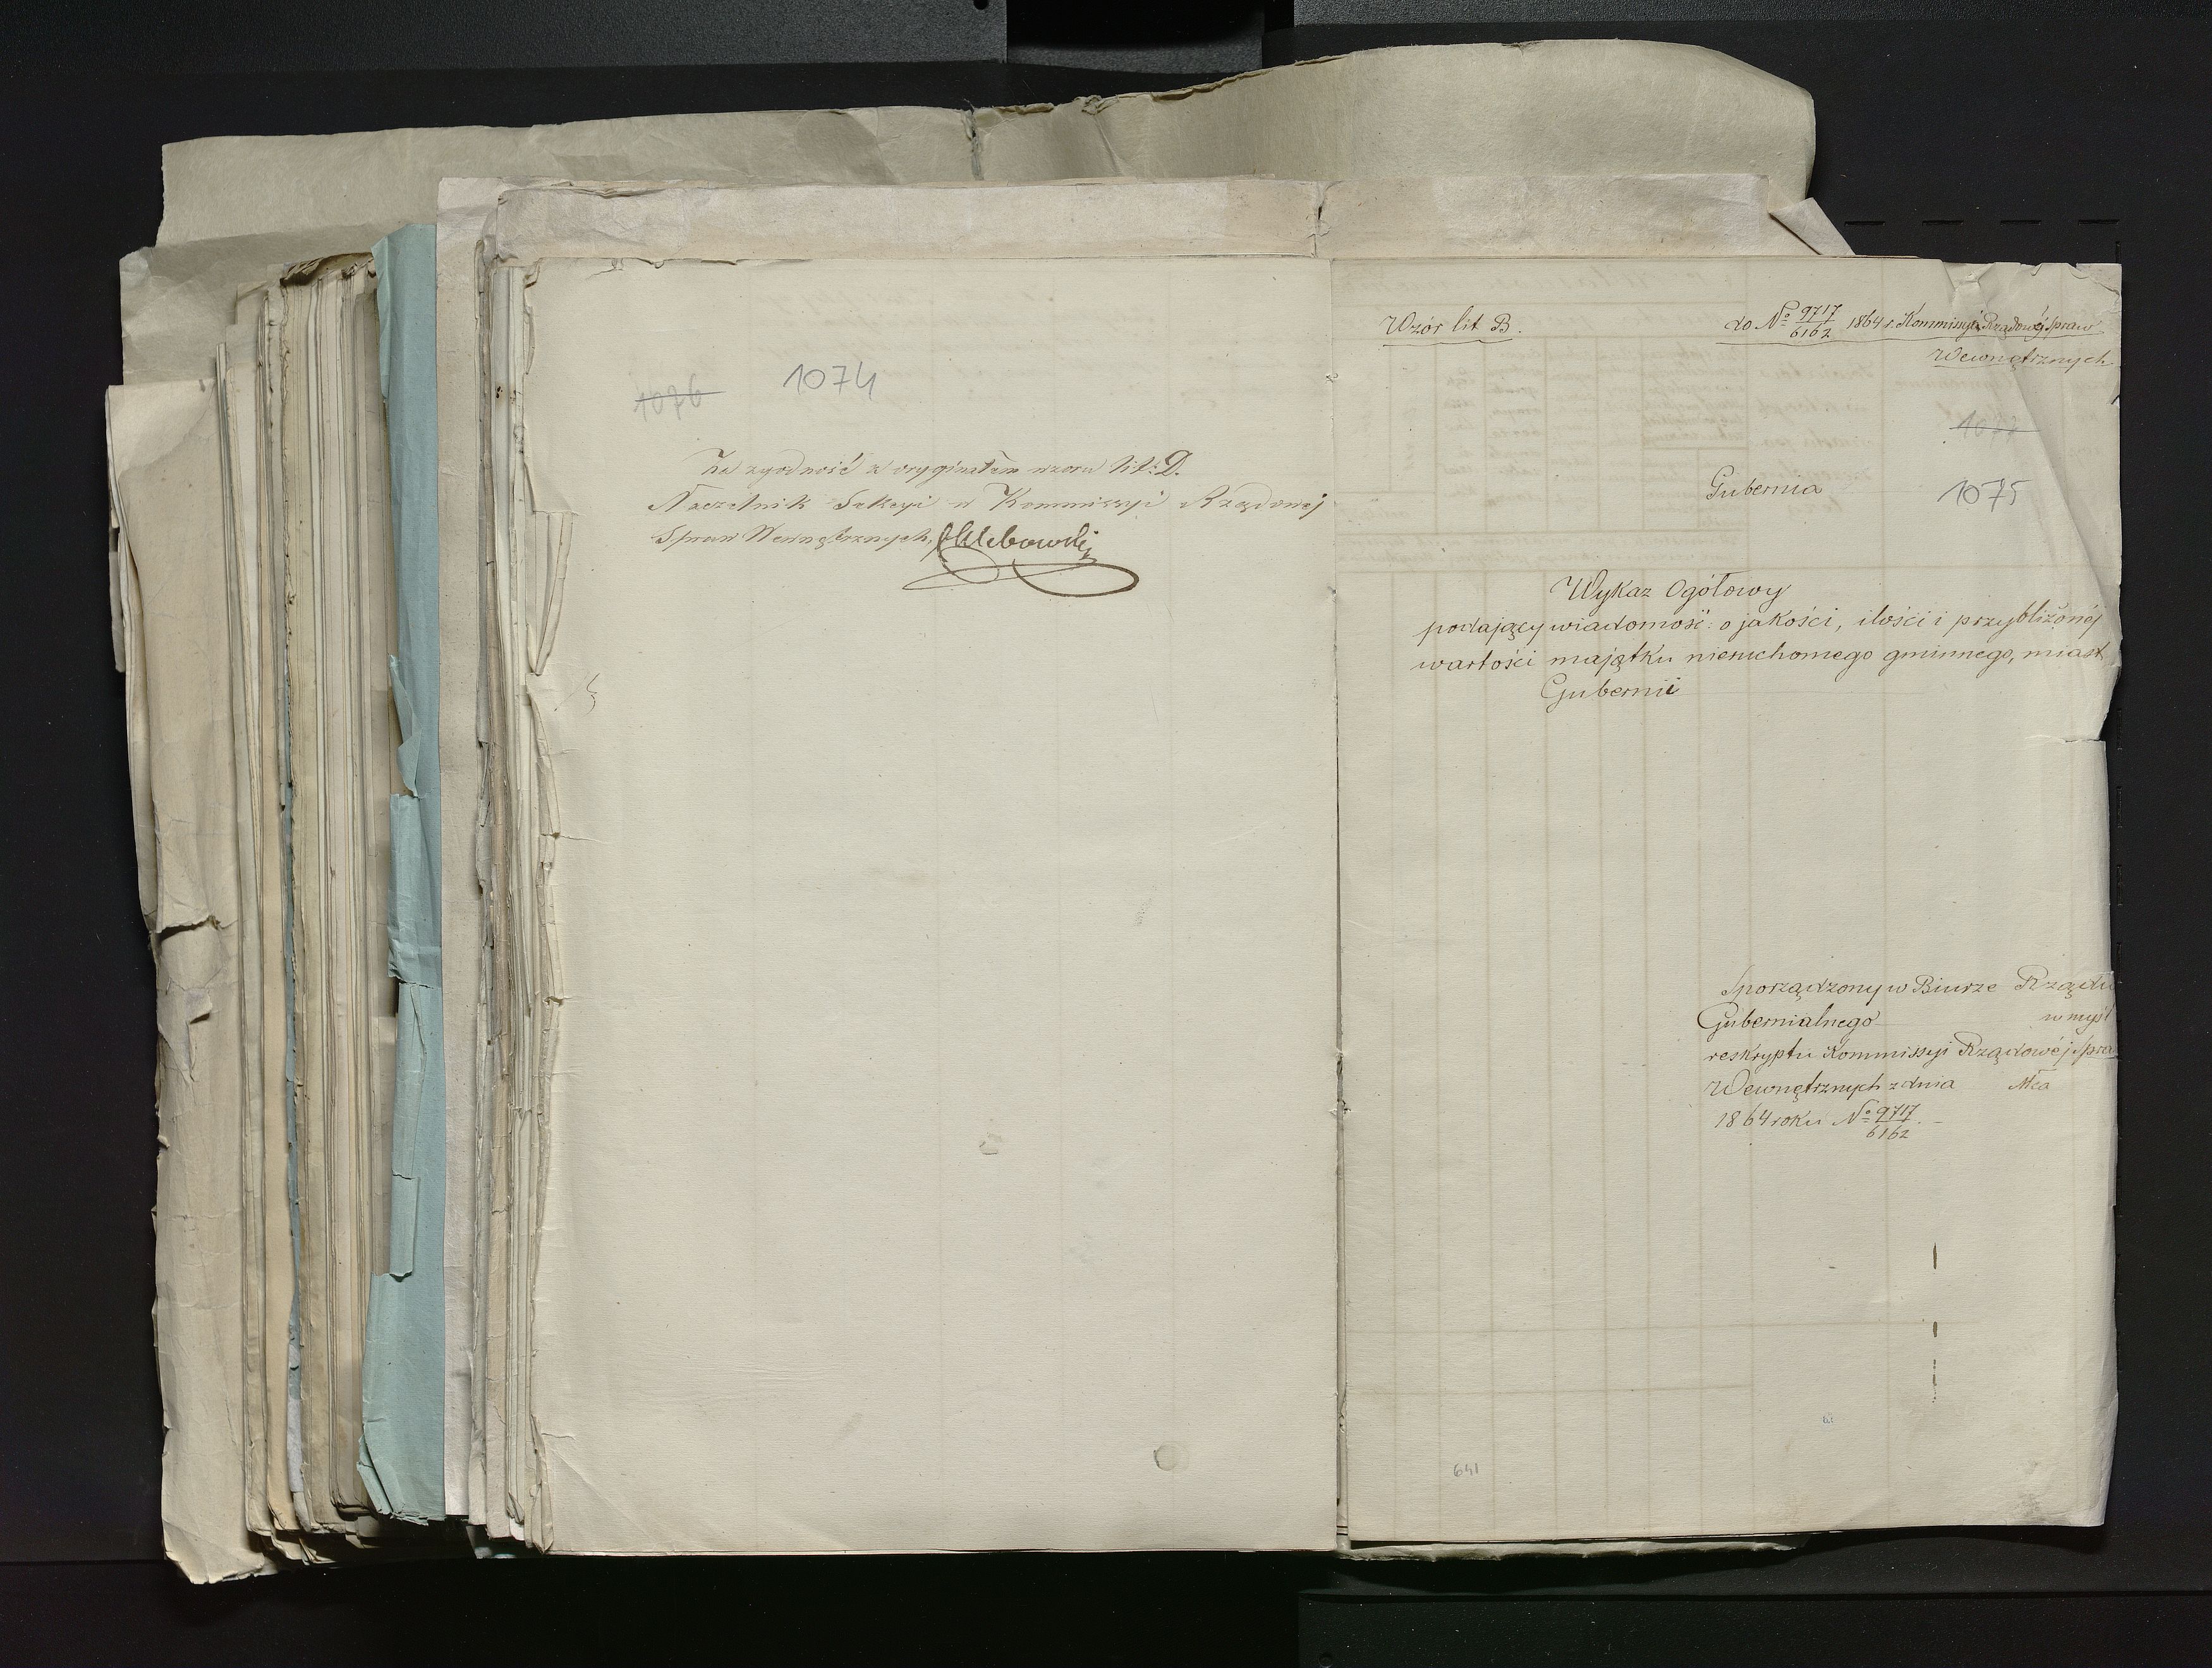 1076
1074
Za zgodność z oryginałem wzoru lit: D.
Naczelnik Sekcyi w Kommissyi Rządowej
Spraw Wewnętrznych,
Wzór lit B.
do No 9717/6162 1864 r. Kommissyi Rządowéj Spraw
Wewnętrznych
1077
Gubernia
1075
Wykaz Ogółowy
podający wiadomość: o jakości, ilości i przybliżonéj
wartości majątku nieruchomego gminnego, miast
Gubernii
Sporządzony w Biurze Rządu
Gubernialnego w myśl
reskryptu Kommissyi Rządowéj Spra
Wewnętrznych z dnia Mca
1864 roku No 9717/6162. -
641